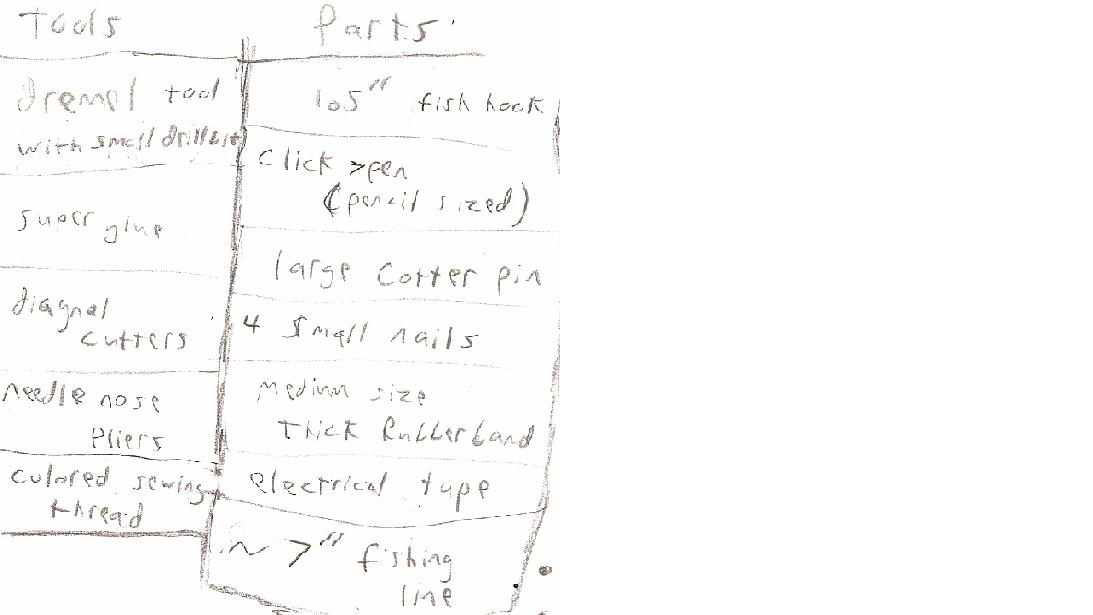 Tools
Parts
dremel tool
with small drillbit)
super glue
diagnal
cutters
needle nose
Pliers
colored sewing
thread
1.5" fish hook
click pen
(pencil sized)
large cotter pin
4 small nails
medium size
Thick Rubberband
electrical tape
~ 7" fishing
line